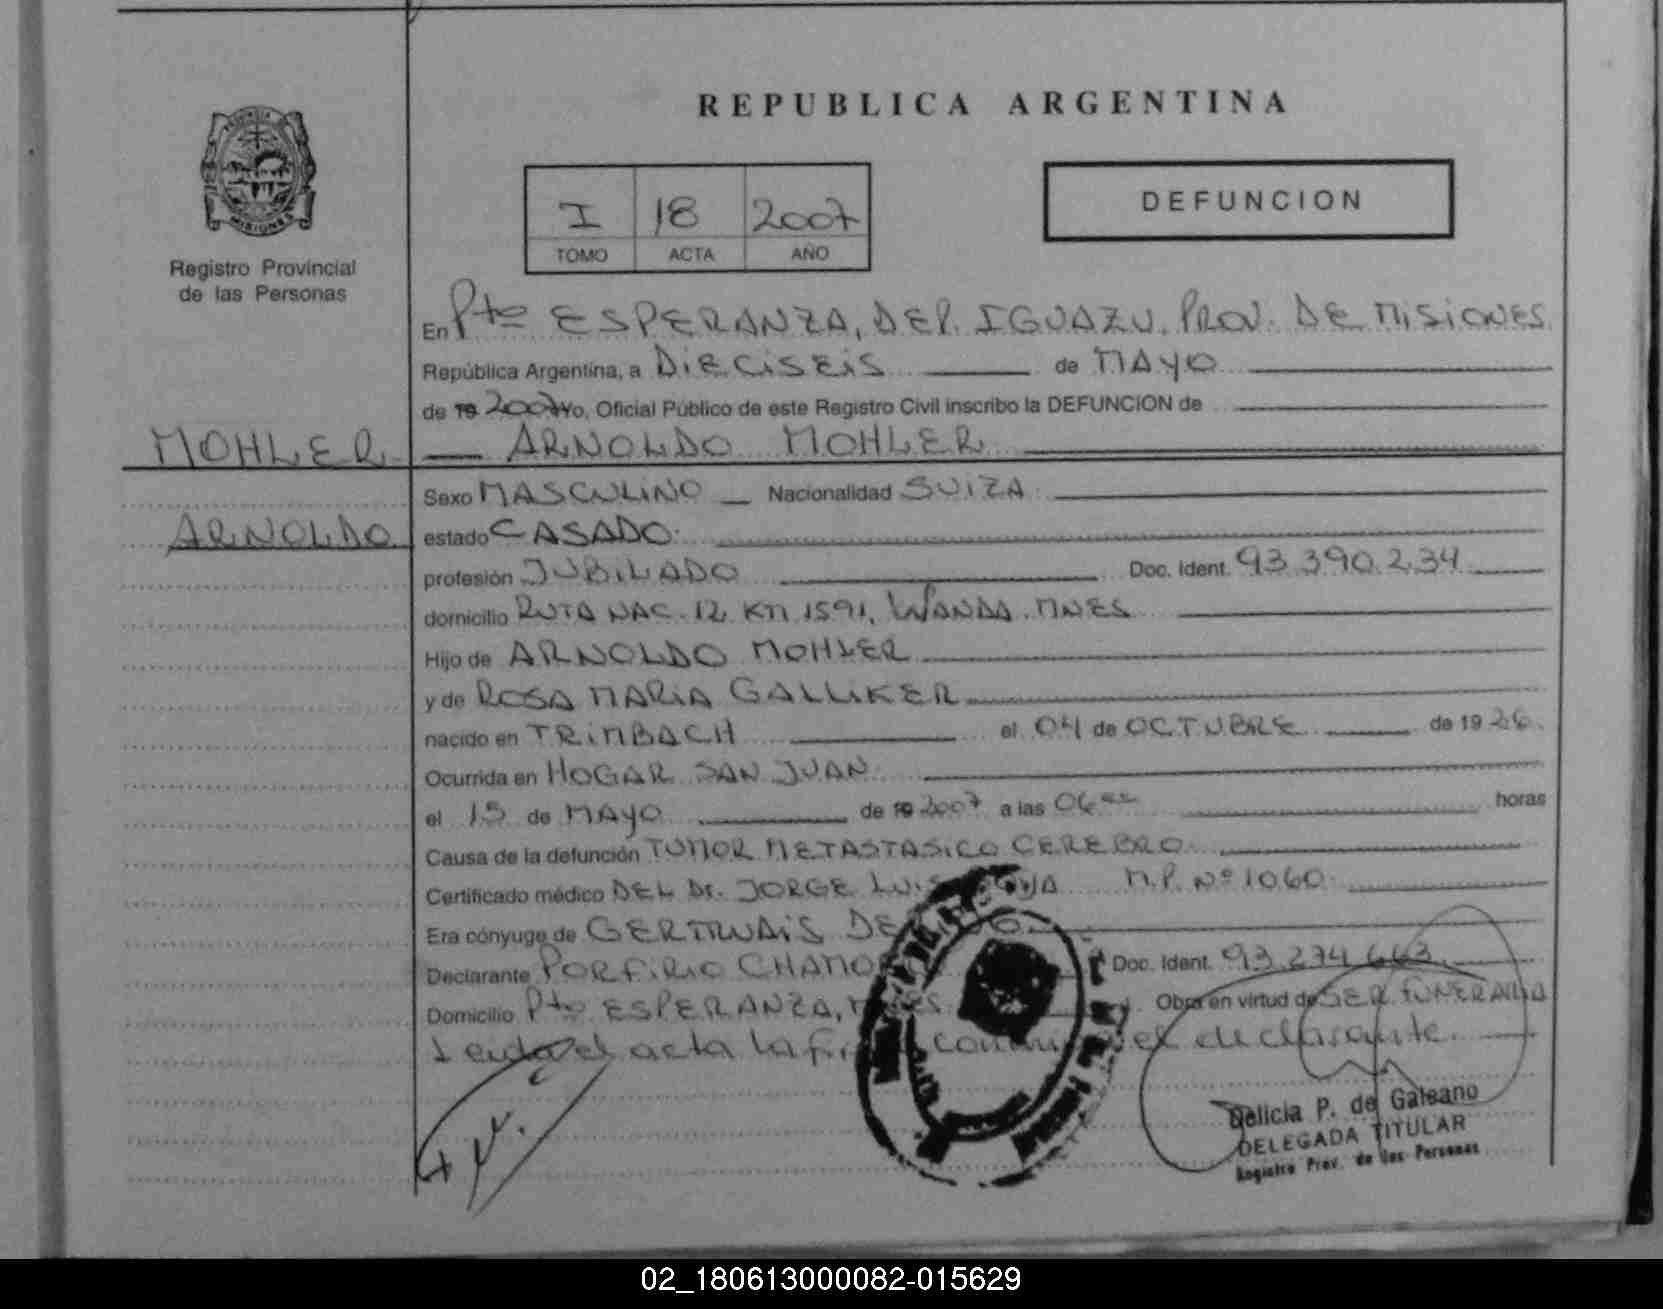 REPUBLICA ARGENTINA
PROVINCIA
MISIONES
Registro Provincial
de las Personas
I 18 2007
TOMO ACTA AÑO
DEFUNCION
En Pto ESPERANZA, DEP. IGUAZU, PROV. DE MISIONES
República Argentina, a DIECISEIS de MAYO
de 19 2007 Yo, Oficial Público de este Registro Civil inscribo la DEFUNCION de
MOHLER ARNOLDO MOHLER
Sexo MASCULINO Nacionalidad SUIZA
ARNOLDO estado CASADO
profesión JUBILADO Doc. Ident. 93.390.234
domicilio RUTA NAC. 12 KM 1591, WANDA MNES
Hijo de ARNOLDO MOHLER
y de ROSA MARIA GALLIKER
nacido en TRIMBACH el 04 de OCTUBRE de 1926
Ocurrida en HOGAR SAN JUAN
el 15 de MAYO de 19 2007 a las 06 horas
Causa de la defunción TUMOR METASTASICO CEREBRO
Certificado médico DEL Dr. JORGE LUIS M.P. Nº 1060
Era cónyuge de
Declarante PORFIRIO Doc. Ident. 93.274.663
Domicilio Pto ESPERANZA, Obra en virtud de SER. FUNERARIA
Leida el acta la el declarante
Delicia P. de Galeano
DELEGADA TITULAR
Registro Prov. de las Personas
02_180613000082-015629